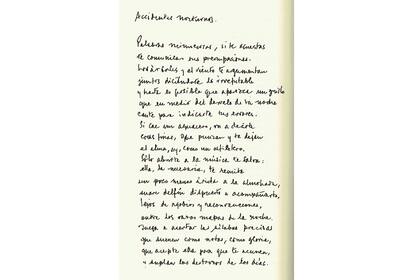 Accidentes nocturnos.
Palabras minuciosas, si te acuestas
te comunican sus preocupaciones.
Los árboles y el viento te argumentan
juntos diciéndote lo irrefutable
y hasta es posible que aparezca un grillo
que en medio del desvelo de tu noche
cante para indicarte tus errores.
Si cae un aguacero, va a decirte
cosas finas, que punzan y te dejan
el alma, ay, como un alfiletero.
Sólo abrirte a la música te salva:
ella, la necesaria, te remite
un poco menos árida a la almohada,
suave delfín dispuesto a acompañarte,
lejos de agobios y reconvenciones,
entre los raros mapas de la noche.
Juega a acertar las sílabas precisas
que suenen como notas, como gloria,
que acepte ella para que te acunen,
y suplan los destrozos de los días.